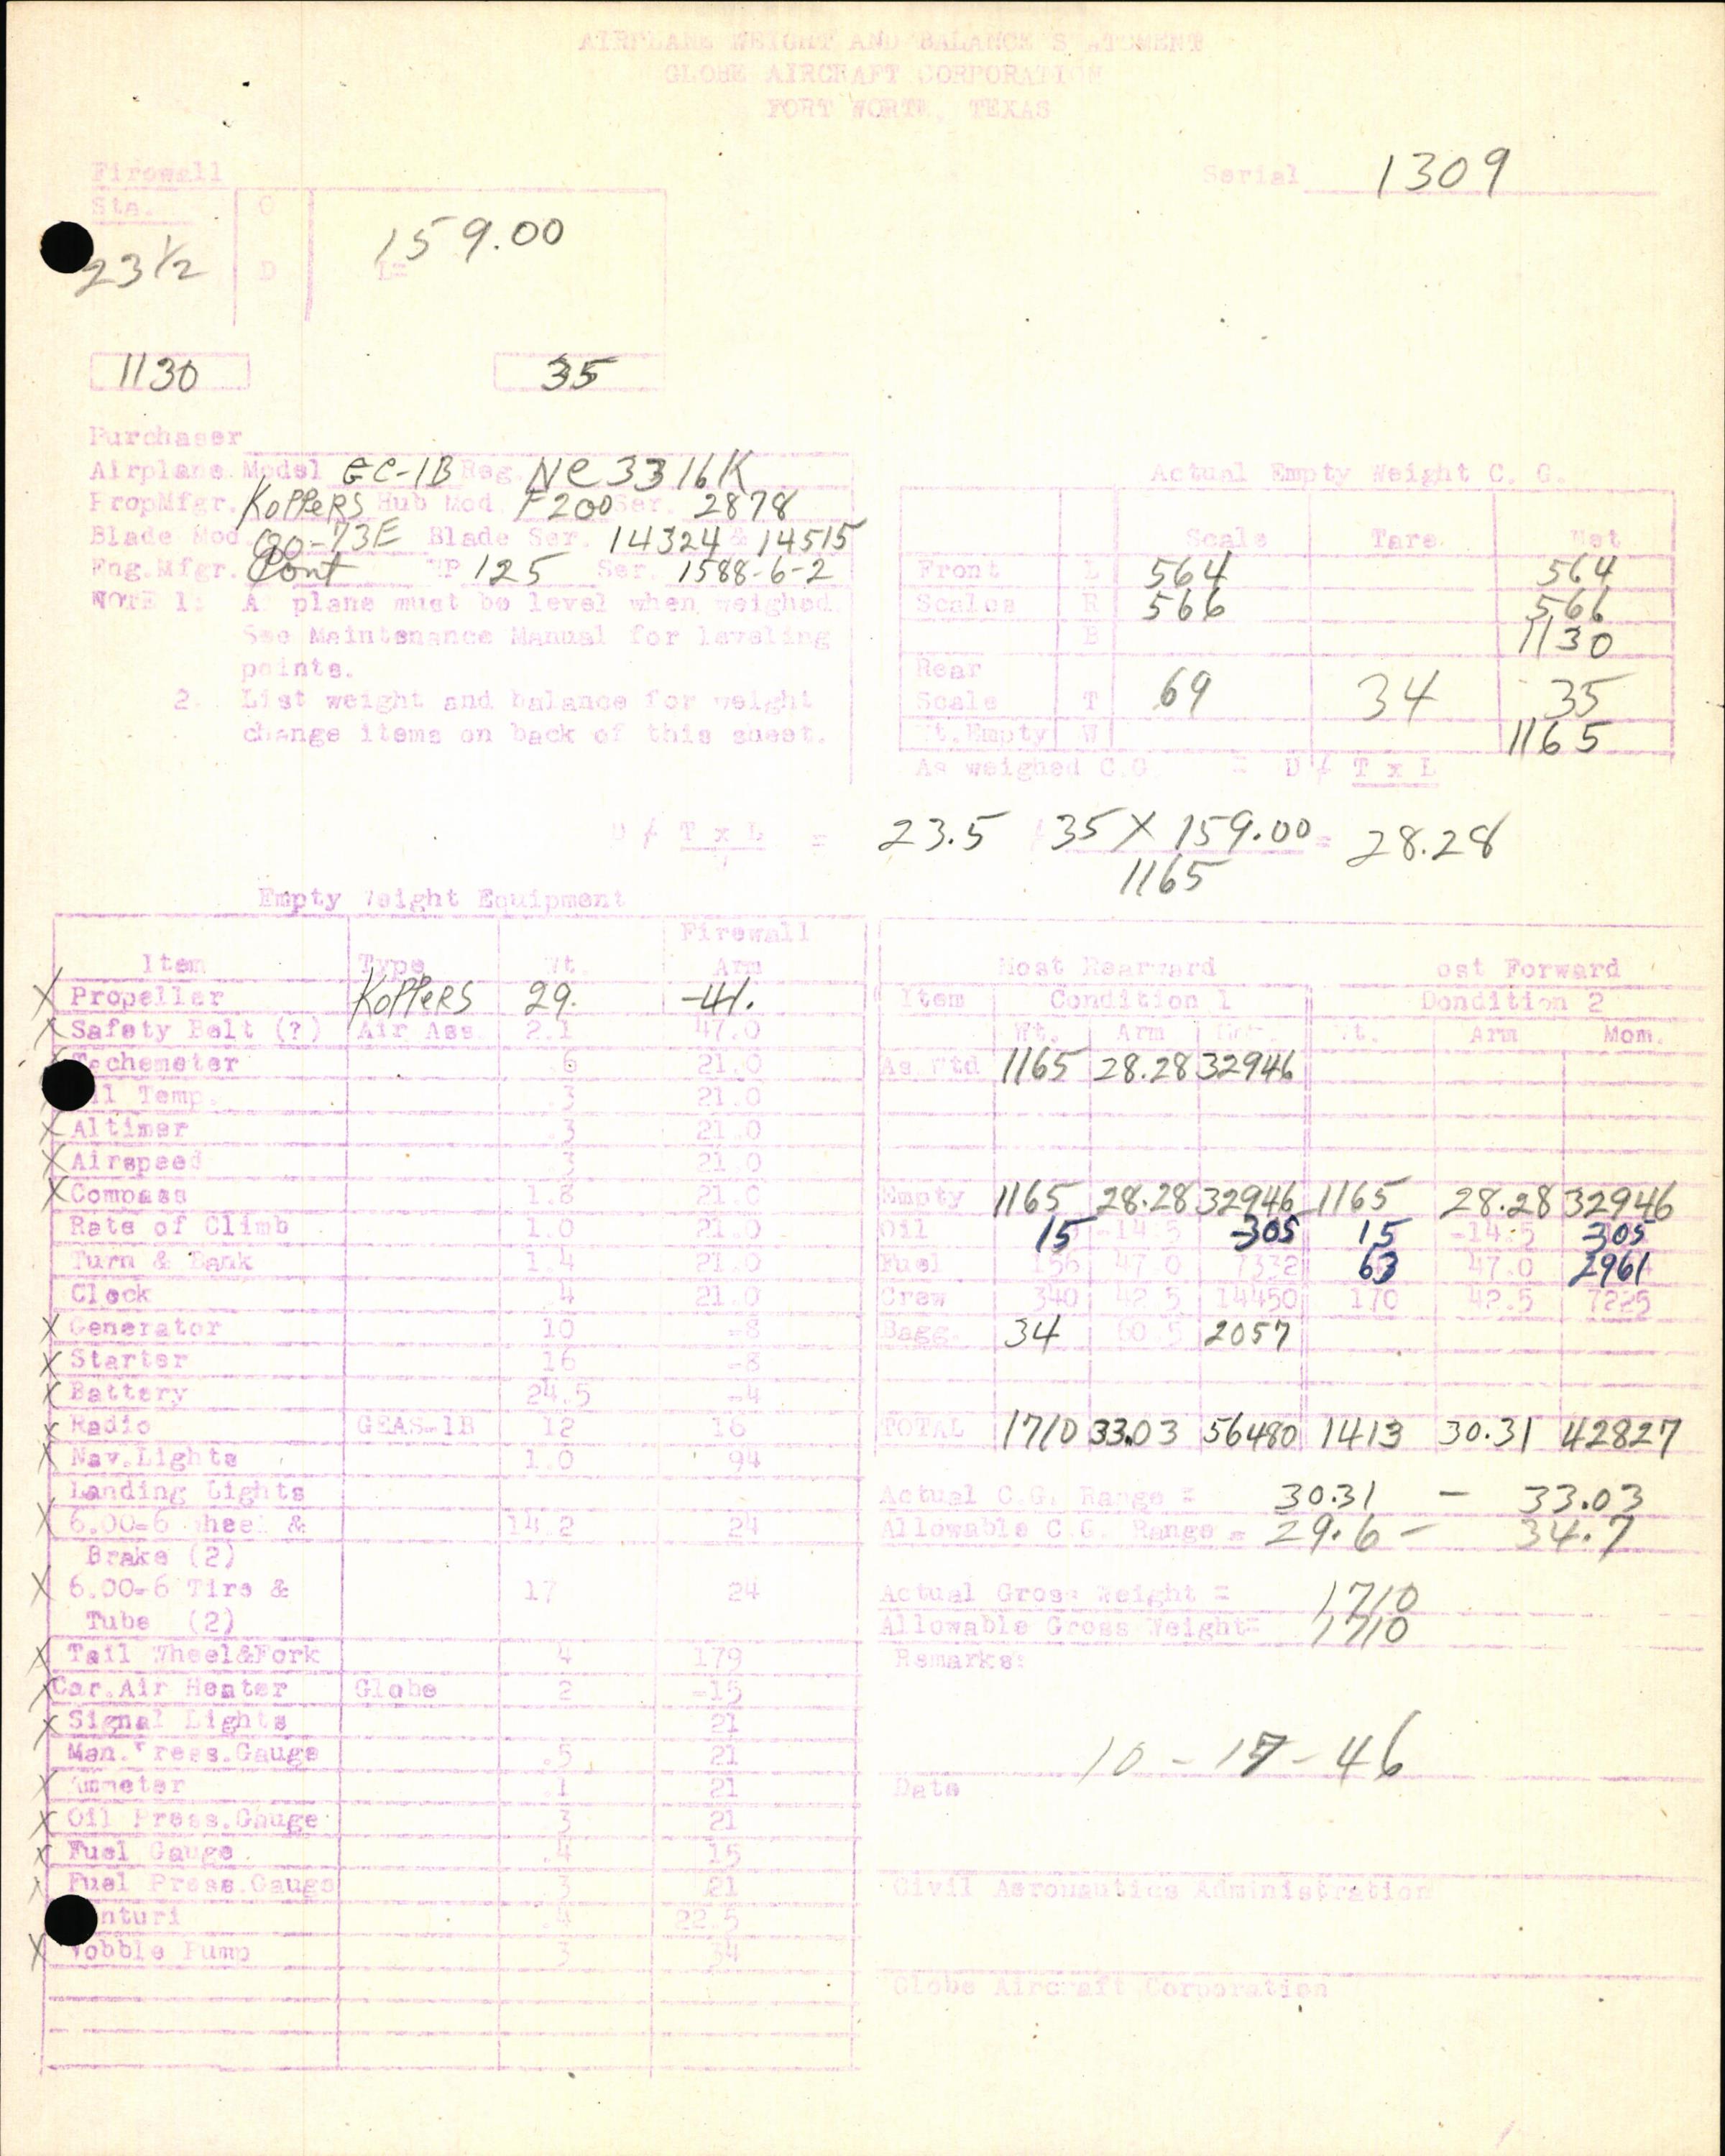 AIRPLANE WEIGHT AND BALANCE STATEMENT
GLOBE AIRCRAFT CORPORATION
FORT WORTH, TEXAS
Firewall
Serial 1309
Sta. O
159.00
23 1/2 D L=
1130 35
Purchaser
Airplane Model GC-1B Reg. NC3316K
PropMfgr. KOPPERS Hub Mod. F200 Ser. 2878
Blade Mod. -73E Blade Ser. 14324 & 14515
Eng.Mfgr. Cont HP 125 Ser. 1588-6-2
NOTE 1: A plane must be level when weighed.
See Maintenance Manual for leveling
points.
2. List weight and balance for weight
change items on back of this sheet.
Actual Empty Weight C. G.
Scale Tare Net
Front L 564 564
Scales R 566 566
B 1130
Rear
Scale T 69 34 35
Wt.Empty W 1165
As weighed C.G. = D / T x L
D / T x L = 23.5 35 X 159.00 = 28.28
1165
Empty Weight Equipment
Firewall
Item Type Wt. Arm
X Propeller KOPPERS 29. -41.
X Safety Belt (?) Air Ass. 2.1 47.0
Tachometer .6 21.0
Oil Temp. .3 21.0
X Altimer .3 21.0
X Airspeed .3 21.0
X Compass 1.8 21.0
Rate of Climb 1.0 21.0
Turn & Bank 1.4 21.0
Clock .4 21.0
X Generator 10 -8
X Starter 16 -8
X Battery 24.5 -4
X Radio GEAS-1B 12 16
X Nav.Lights 1.0 94
Landing Lights
X 6.00-6 Wheel & 14.2 24
Brake (2)
X 6.00-6 Tire & 17 24
Tube (2)
X Tail Wheel&Fork 4 179
X Car.Air Heater Globe 2 -15
X Signal Lights 21
Man.Press.Gauge .5 21
X Ammeter .1 21
X Oil Press.Gauge .3 21
X Fuel Gauge .4 15
X Fuel Press.Gauge .3 21
Venturi .4 22.5
X Wobble Pump 3 34
Most Rearward Most Forward
Item Condition 1 Dondition 2
Wt. Arm Mom. Wt. Arm Mom.
As Wtd 1165 28.28 32946
Empty 1165 28.28 32946 1165 28.28 32946
Oil 15 -14.5 -305 15 -14.5 -305
Fuel 156 47.0 7332 63 47.0 2961
Crew 340 42.5 14450 170 42.5 7225
Bagg. 34 60.5 2057
TOTAL 1710 33.03 56480 1413 30.31 42827
Actual C.G. Range = 30.31 - 33.03
Allowable C.G. Range = 29.6 - 34.7
Actual Gross Weight = 1710
Allowable Gross Weight= 1710
Remarks:
10-17-46
Date
Civil Aeronautics Administration
Globe Aircraft Corporation